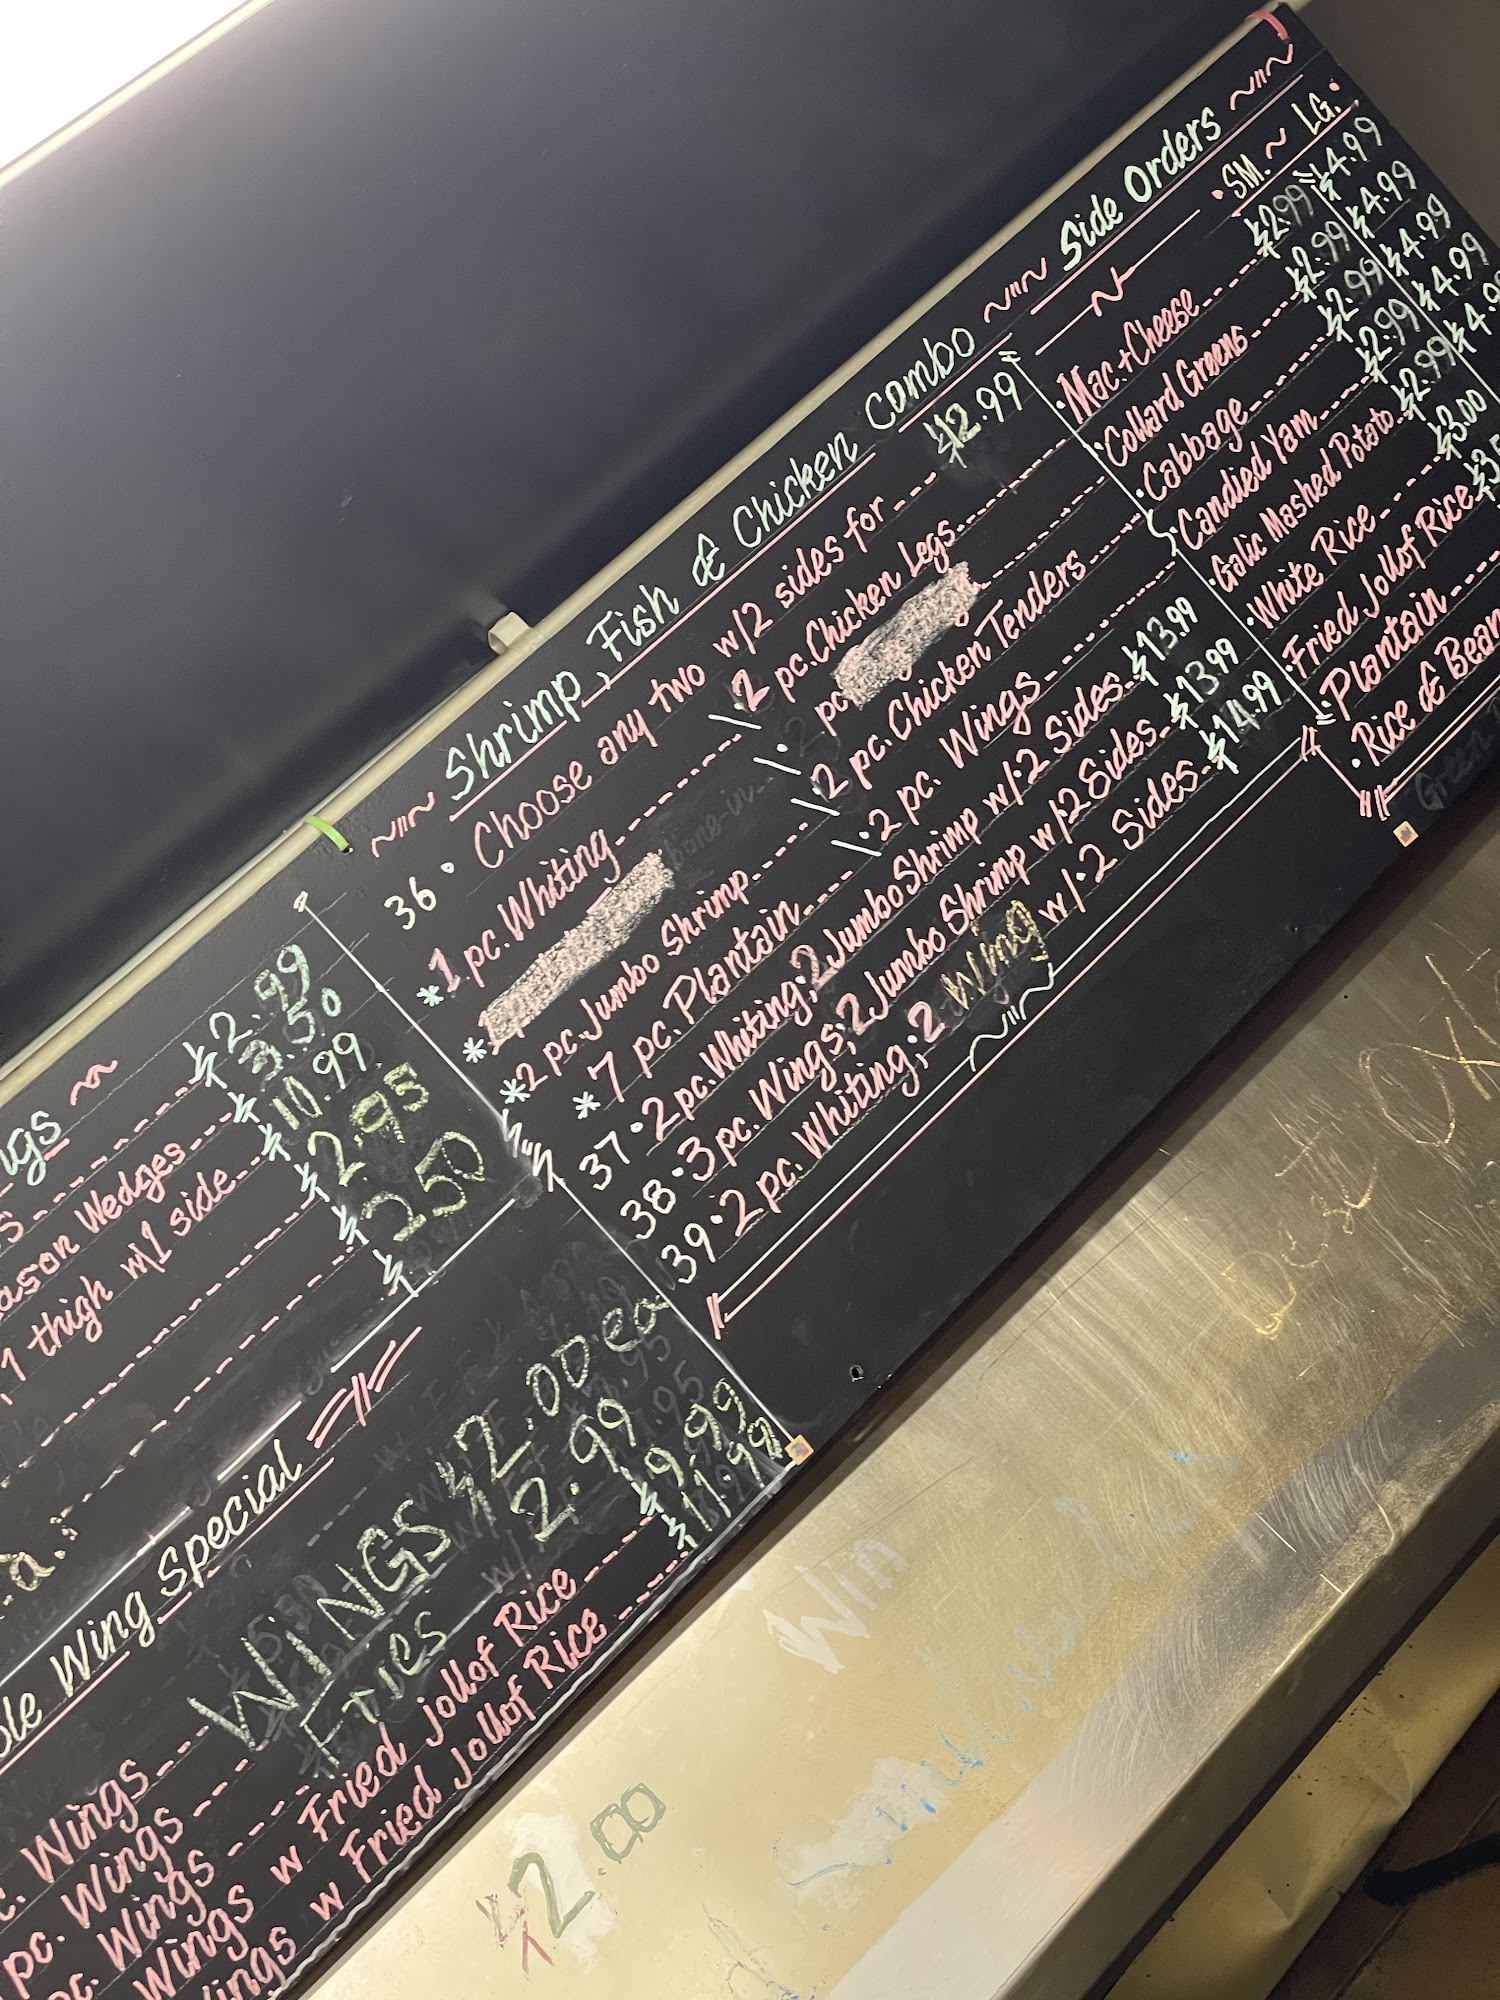 ~ıı~ Shrimp, Fish & Chicken Combo ~ıı~
36 · Choose any two w/2 sides for --- $12.99
* 1 pc. Whiting
*
* 2 pc. Jumbo Shrimp
* 7 pc. Plantain
· 2 pc. Chicken Legs
· pc
· 2 pc. Chicken Tenders
· 2 pc. Wings
37 · 2 pc. Whiting; 2 Jumbo Shrimp w/· 2 Sides $13.99
38 · 3 pc. Wings; 2 Jumbo Shrimp w/2 Sides $13.99
39 · 2 pc. Whiting; 2 Wing w/· 2 Sides $14.99
Side Orders ~ıı~
· SM. ~ LG. ·
· Mac.+Cheese $2.99 $4.99
· Collard Greens $2.99 $4.99
· Cabbage $2.99 $4.99
· Candied Yam $2.99 $4.99
· Galic Mashed Potato $2.99
· White Rice $3.00
· Fried Jollof Rice
· Plantain
· Rice &
Green
~
$2.99
Wedges $3.50
1 thigh w/1 side $10.99
$2.95
$2.50
Wing Special
Wings
WiNGS $2.00.ea
pc. Wings
Fries 2.99
pc. Wings
Wings w Fried Jollof Rice $9.99
w Fried Jollof Rice $11.99
Win
$2.00